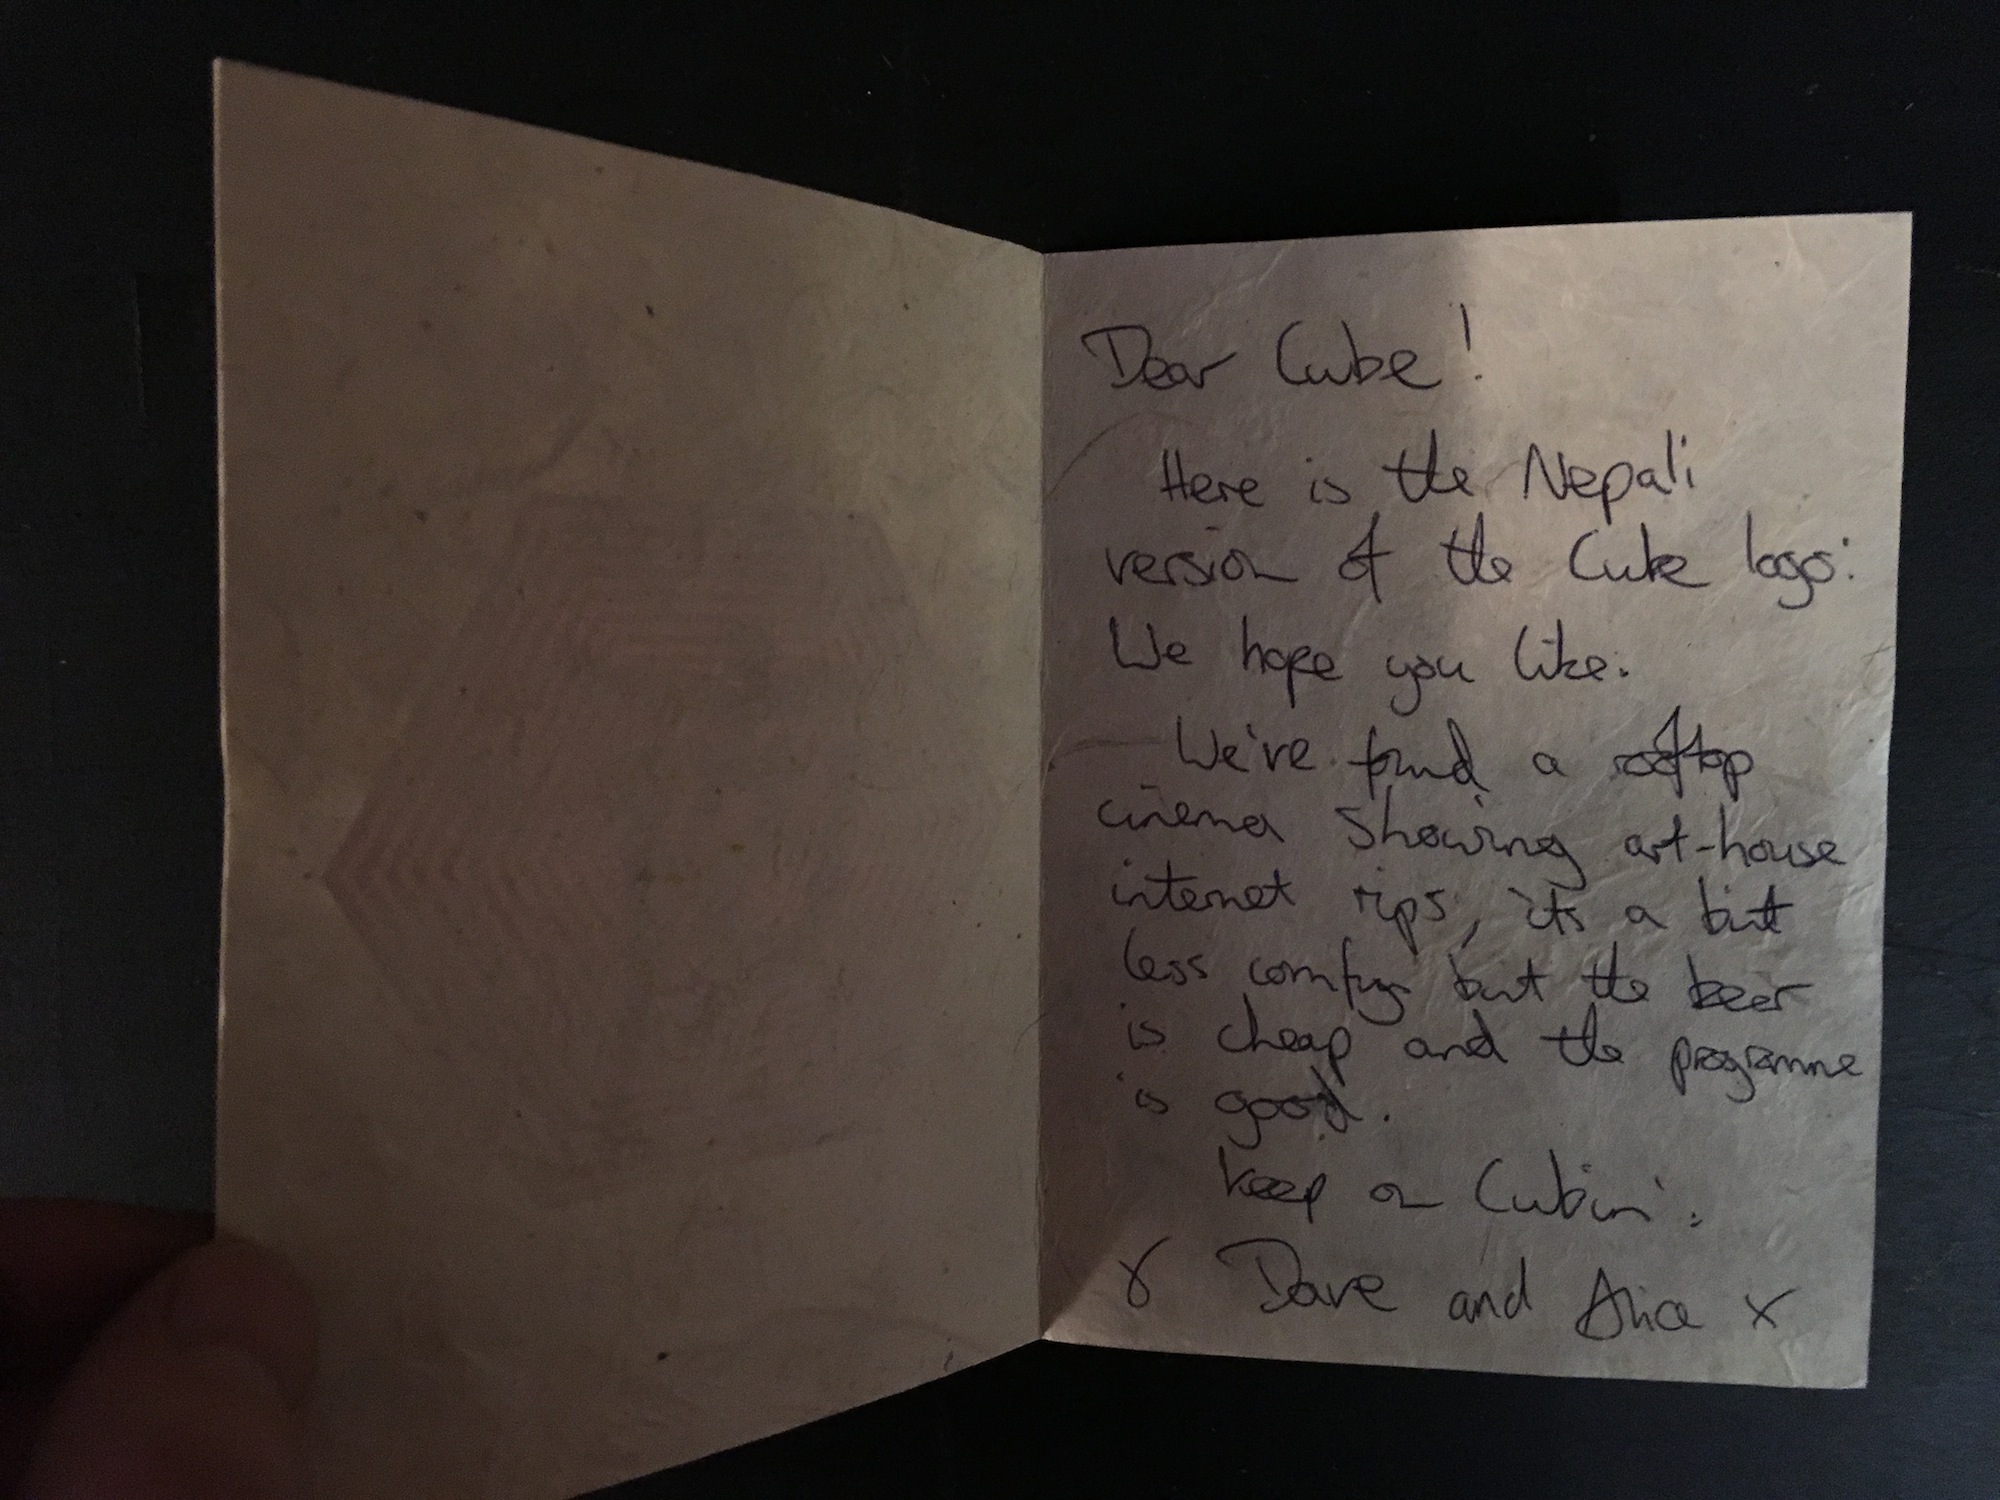 Dear Cube!
Here is the Nepali
version of the Cube logo:
We hope you like.
We've found a rooftop
cinema showing art-house
internet rips, it's a bit
less comfy but the beer
is cheap and the programme
is good.
keep on Cubin'.
x Dave and Alice x